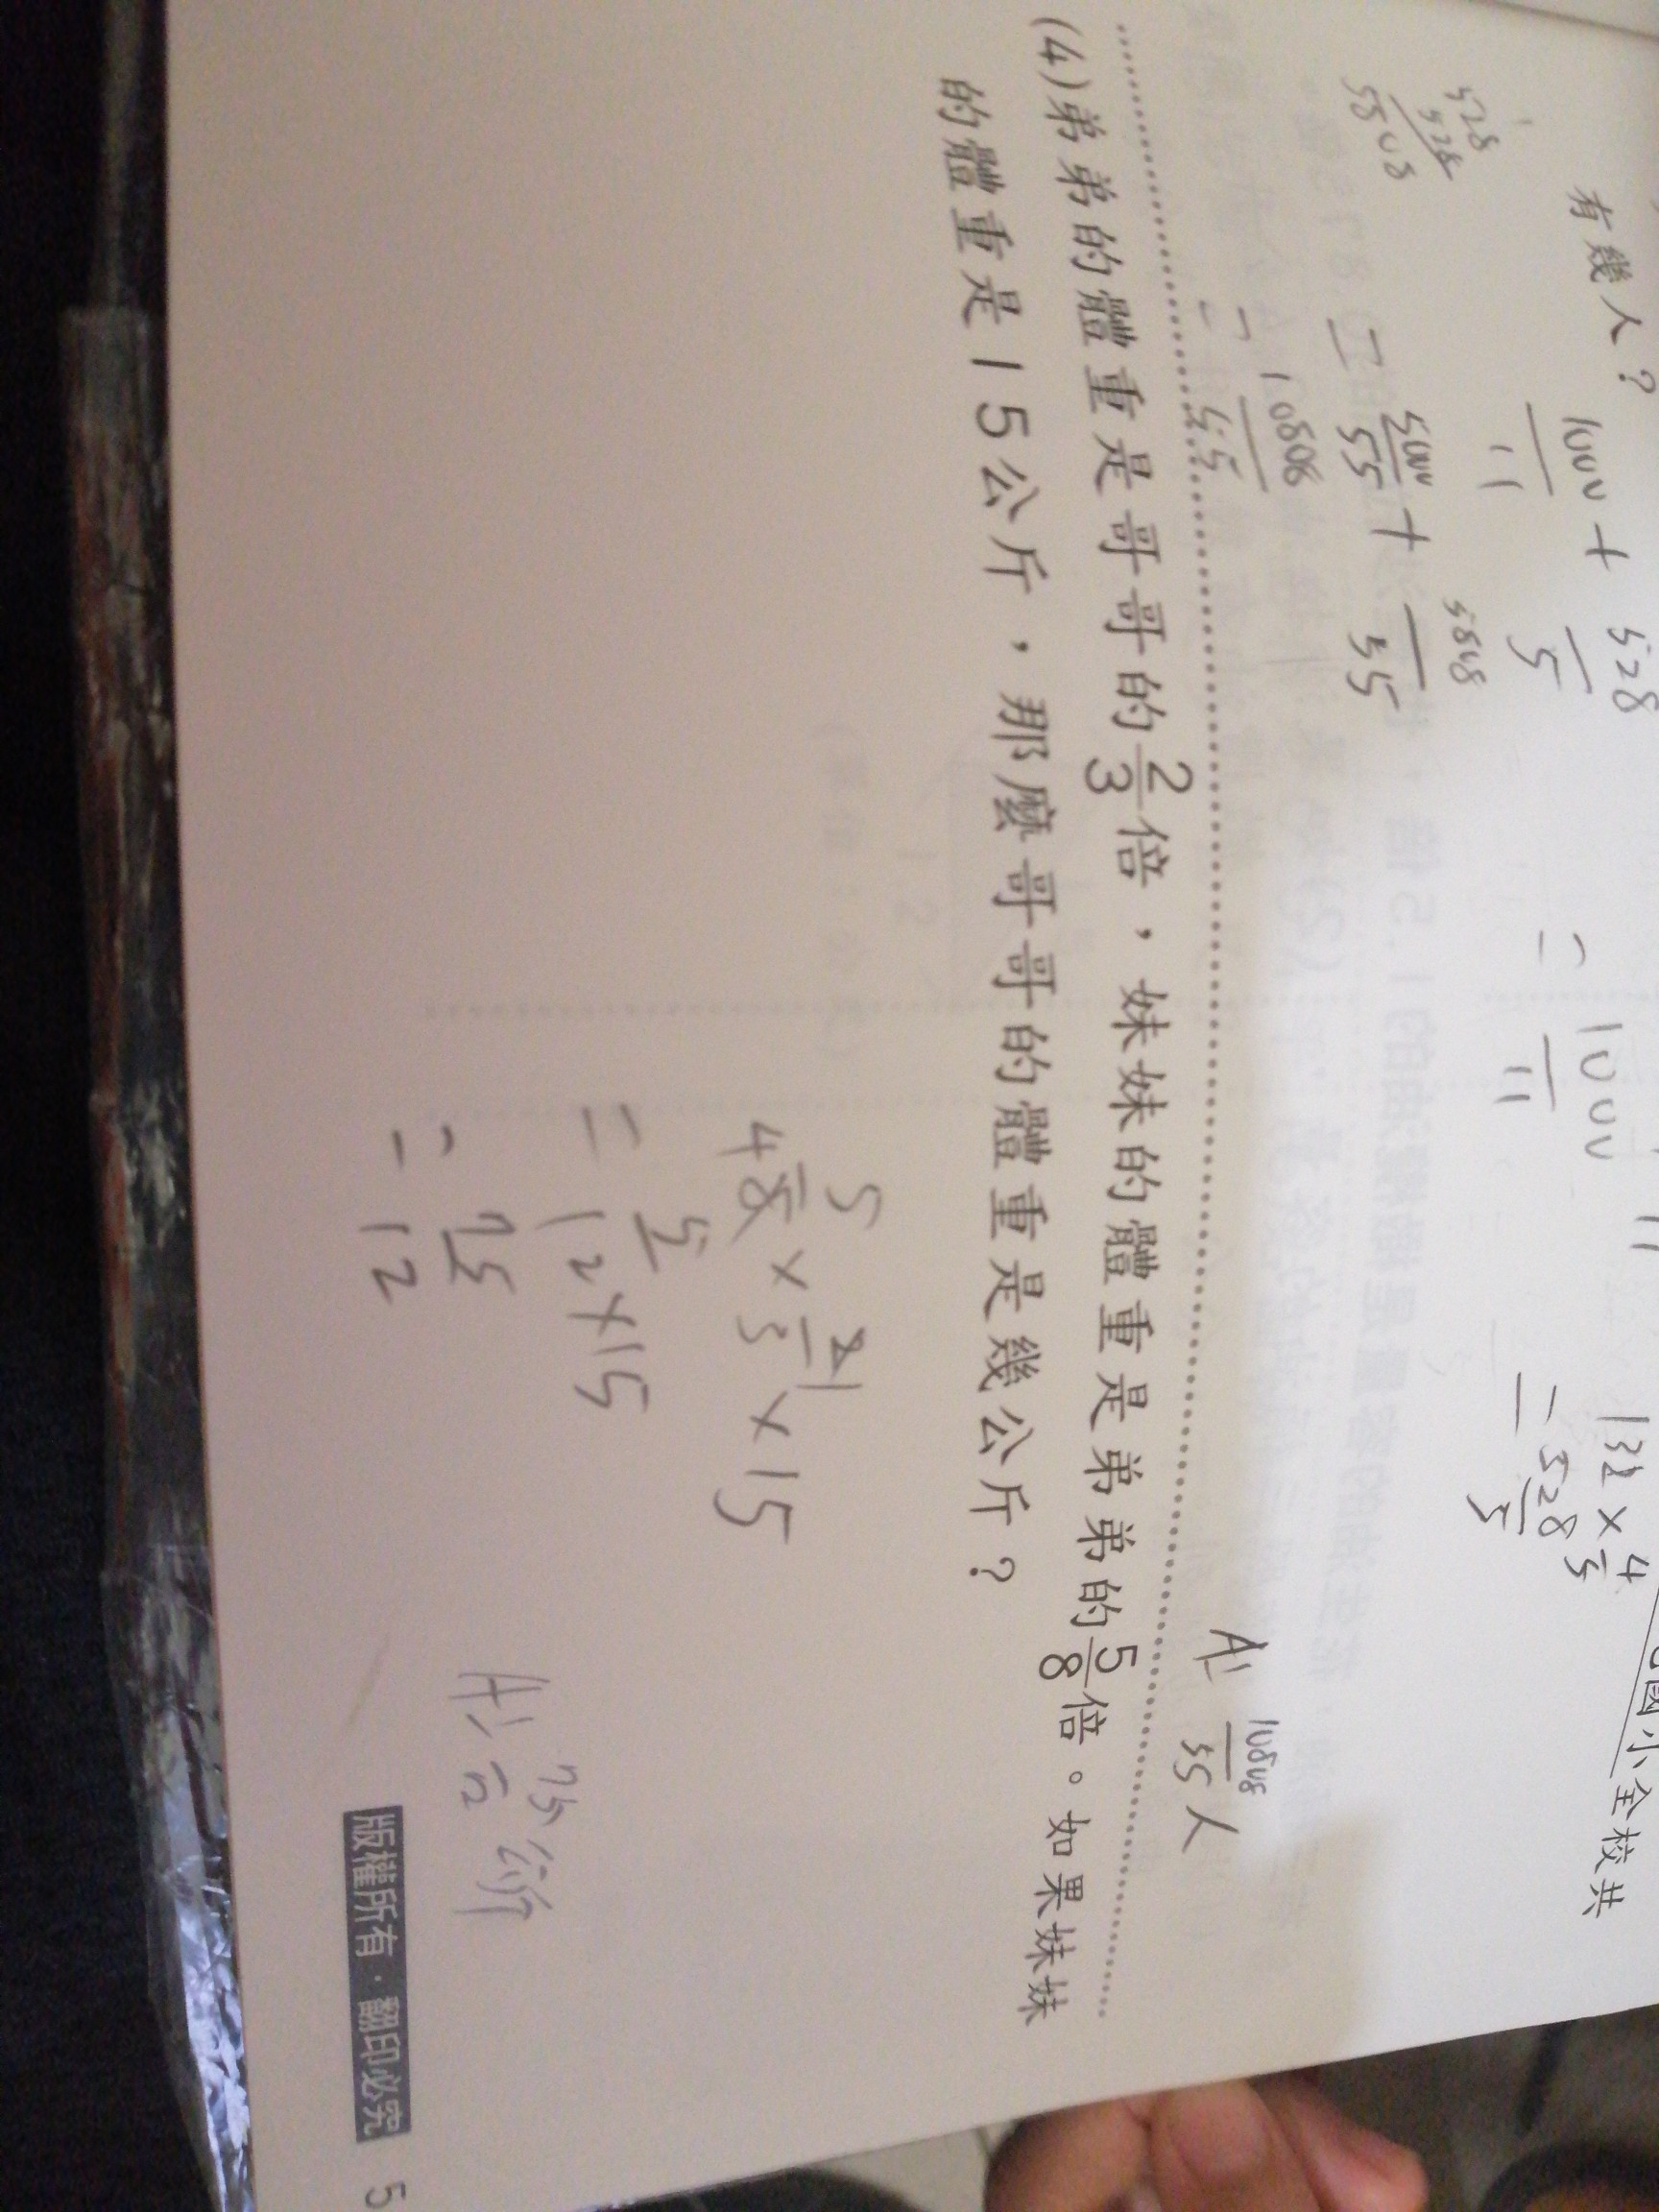 國小全校共
有幾人？
132 × 4/5
= 528/5
1000/11 + 528/5
= 1000/11
528
528
5808
= 5000/55 + 5808/55
= 10808/55
A: 10808/55 人
(4)弟弟的體重是哥哥的2/3倍，妹妹的體重是弟弟的5/8倍。如果妹妹
的體重是15公斤，那麼哥哥的體重是幾公斤？
5/8 × 2/3 × 15
4 1
= 5/12 × 15
= 75/12
A: 75/12 公斤
版權所有·翻印必究 5